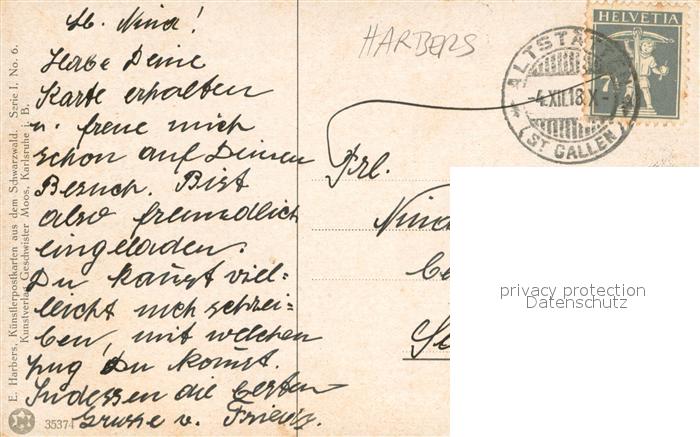 Lb. Nina!
Habe Deine
Karte erhalten
u. freue mich
schon auf Deinen
Besuch. Bist
also freundlich
eingeladen.
Du kannst viel-
leicht noch schrei-
ben, mit welchen
Zug Du komst.
Indessen die besten
Grüsse v.
HARBERS
HELVETIA
7½
ALTSTÄTTEN
-4.XII.18.X-
(ST GALLEN)
Frl.
Nina
privacy protection
Datenschutz
E. Harbers, Künstlerpostkarten aus dem Schwarzwald. Serie I. No. 6.
Kunstverlag Geschwister Moos, Karlsruhe i. B.
35374